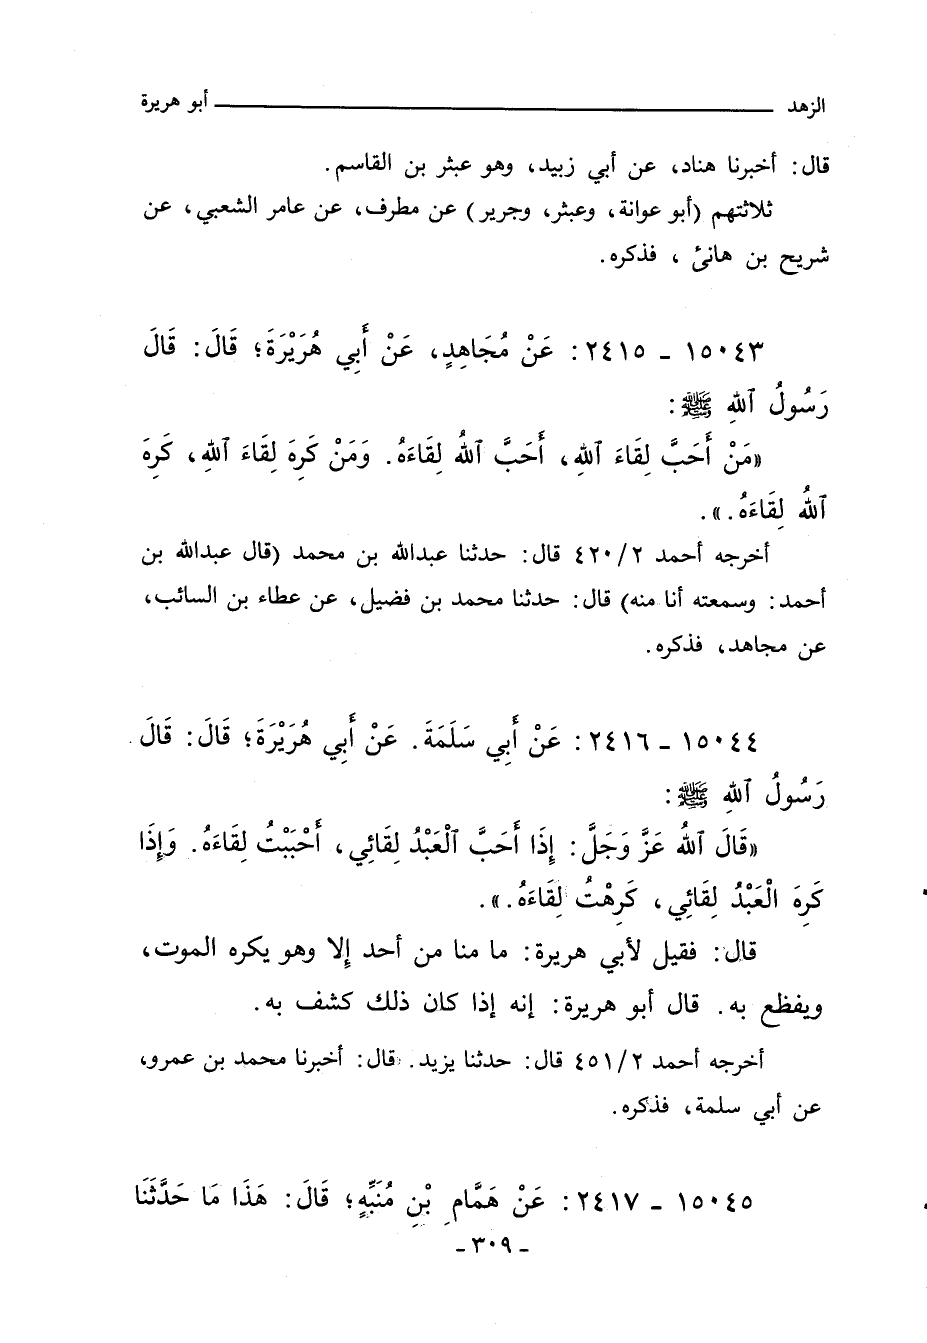 الزهد ــــــــــــــــــــ أبو هريرة
قال: أخبرنا هناد، عن أبي زبيد، وهو عبثر بن القاسم.
ثلاثتهم (أبو عوانة، وعبثر، وجرير) عن مطرف، عن عامر الشعبي، عن
شريح بن هانئ ، فذكره.
١٥٠٤٣ - ٢٤١٥: عَنْ مُجَاهِدٍ، عَنْ أَبِي هُرَيْرَةَ؛ قَالَ: قَالَ
رَسُولُ ٱللهِ ﷺ:
«مَنْ أَحَبَّ لِقَاءَ ٱللهِ، أَحَبَّ ٱللهُ لِقَاءَهُ. وَمَنْ كَرِهَ لِقَاءَ ٱللهِ، كَرِهَ
ٱللهُ لِقَاءَهُ.».
أخرجه أحمد ٤٢٠/٢ قال: حدثنا عبدالله بن محمد (قال عبدالله بن
أحمد: وسمعته أنا منه) قال: حدثنا محمد بن فضيل، عن عطاء بن السائب،
عن مجاهد، فذكره.
١٥٠٤٤ - ٢٤١٦: عَنْ أَبِي سَلَمَةَ. عَنْ أَبِي هُرَيْرَةَ؛ قَالَ: قَالَ
رَسُولُ ٱللهِ ﷺ:
«قَالَ ٱللهُ عَزَّ وَجَلَّ: إِذَا أَحَبَّ ٱلْعَبْدُ لِقَائِي، أَحْبَبْتُ لِقَاءَهُ. وَإِذَا
كَرِهَ الْعَبْدُ لِقَائِي، كَرِهْتُ لِقَاءَهُ.».
قال: فقيل لأبي هريرة: ما منا من أحد إلا وهو يكره الموت،
ويفظع به. قال أبو هريرة: إنه إذا كان ذلك كشف به.
أخرجه أحمد ٤٥١/٢ قال: حدثنا يزيد. قال: أخبرنا محمد بن عمرو،
عن أبي سلمة، فذكره.
١٥٠٤٥ - ٢٤١٧: عَنْ هَمَّامِ بْنِ مُنَبِّهٍ؛ قَالَ: هَذَا مَا حَدَّثَنَا
- ٣٠٩ -